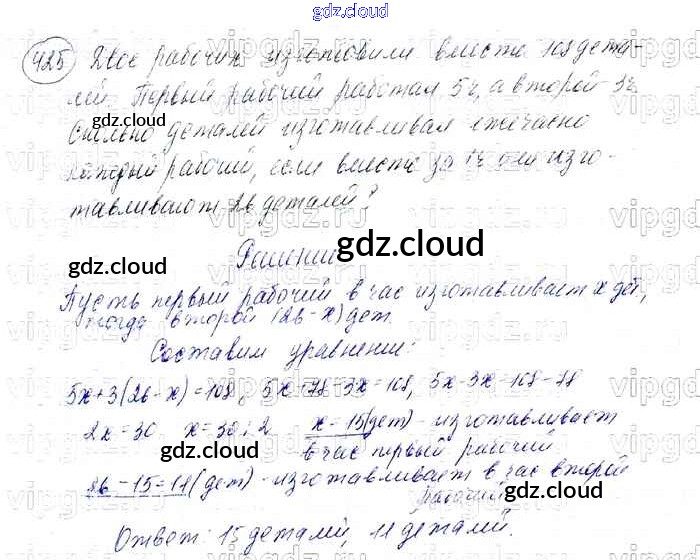 gdz.cloud
425 Двое рабочих изготовили вместе 108 дета-
gdz.cloud
лей. Первый рабочий работал 5ч, а второй-3ч.
gdz.cloud gdz.cloud
Сколько деталей изготавливал ежечасно
каждый рабочий, если вместе за 1ч они изго-
тавливают 26 деталей?
Решение
gdz.cloud
gdz.cloud
Пусть первый рабочий в час изготавливает x дет,
тогда второй (26-x) дет.
Составим уравнение:
5x+3(26-x)=108; 5x+78-3x=108, 5x-3x=108-78
2x=30 x=30:2 x=15(дет) - изготавливает
gdz.cloud
в час первый рабочий
26-15=11(дет)-изготавливает в час второй
рабочий
gdz.cloud
Ответ: 15 деталей, 11 деталей.